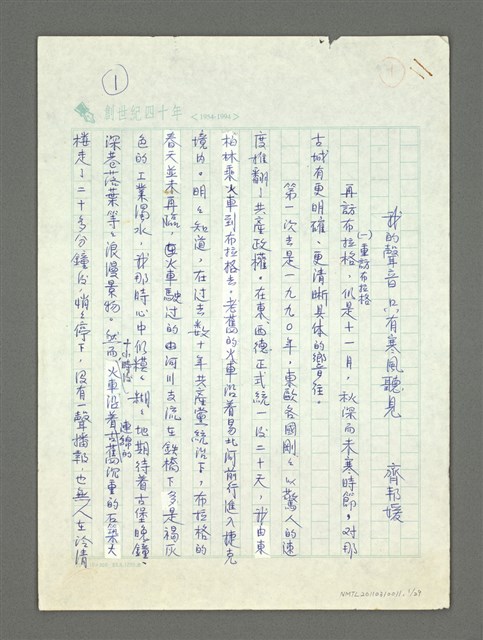 ①
創世紀四十年 <1954-1994>
我的聲音只有寒風聽見　齊邦媛
(一)重訪布拉格
再訪布拉格，仍是十一月，秋深而未寒時節。對那
古城有更明確、更清晰具体的嚮往。
第一次去是一九九〇年，東歐各國剛剛以驚人的速
度推翻了共產政權。在東西德正式統一後二十天，我由東
柏林乘火車到布拉格去。老舊的火車沿着易北河前行進入捷克
境內。明明知道，在过去数十年共產黨統治下，布拉格的
春天並未再臨，連火車駛过的由河川支流在鉄橋下多是褐灰
色的工業濁水，我那時心中仍模模糊糊地期待着古堡晚鐘、
深巷落葉等等浪漫景物。然而，火車沿着古舊沉重的石築大
十小時後
連綿的
樓走了二十多分鐘後，悄悄停下，沒有一聲播報，也無人在冷清
NMTL20110310011, 1/29